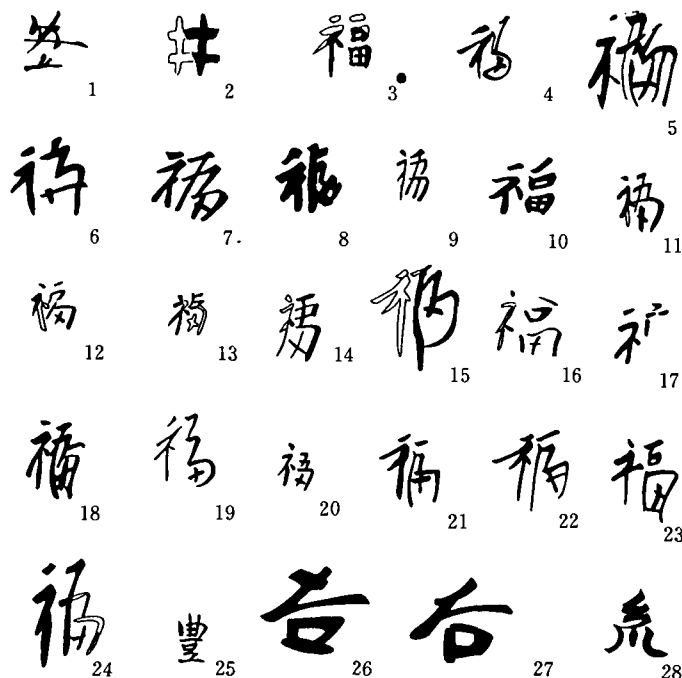 1 2 福 3 福 4 福 5
6 福 7 福 8 福 9 福 10 福 11
福 12 福 13 福 14 15 福 16 17
福 18 福 19 福 20 福 21 福 22 福 23
福 24 豐 25 26 右 27 28